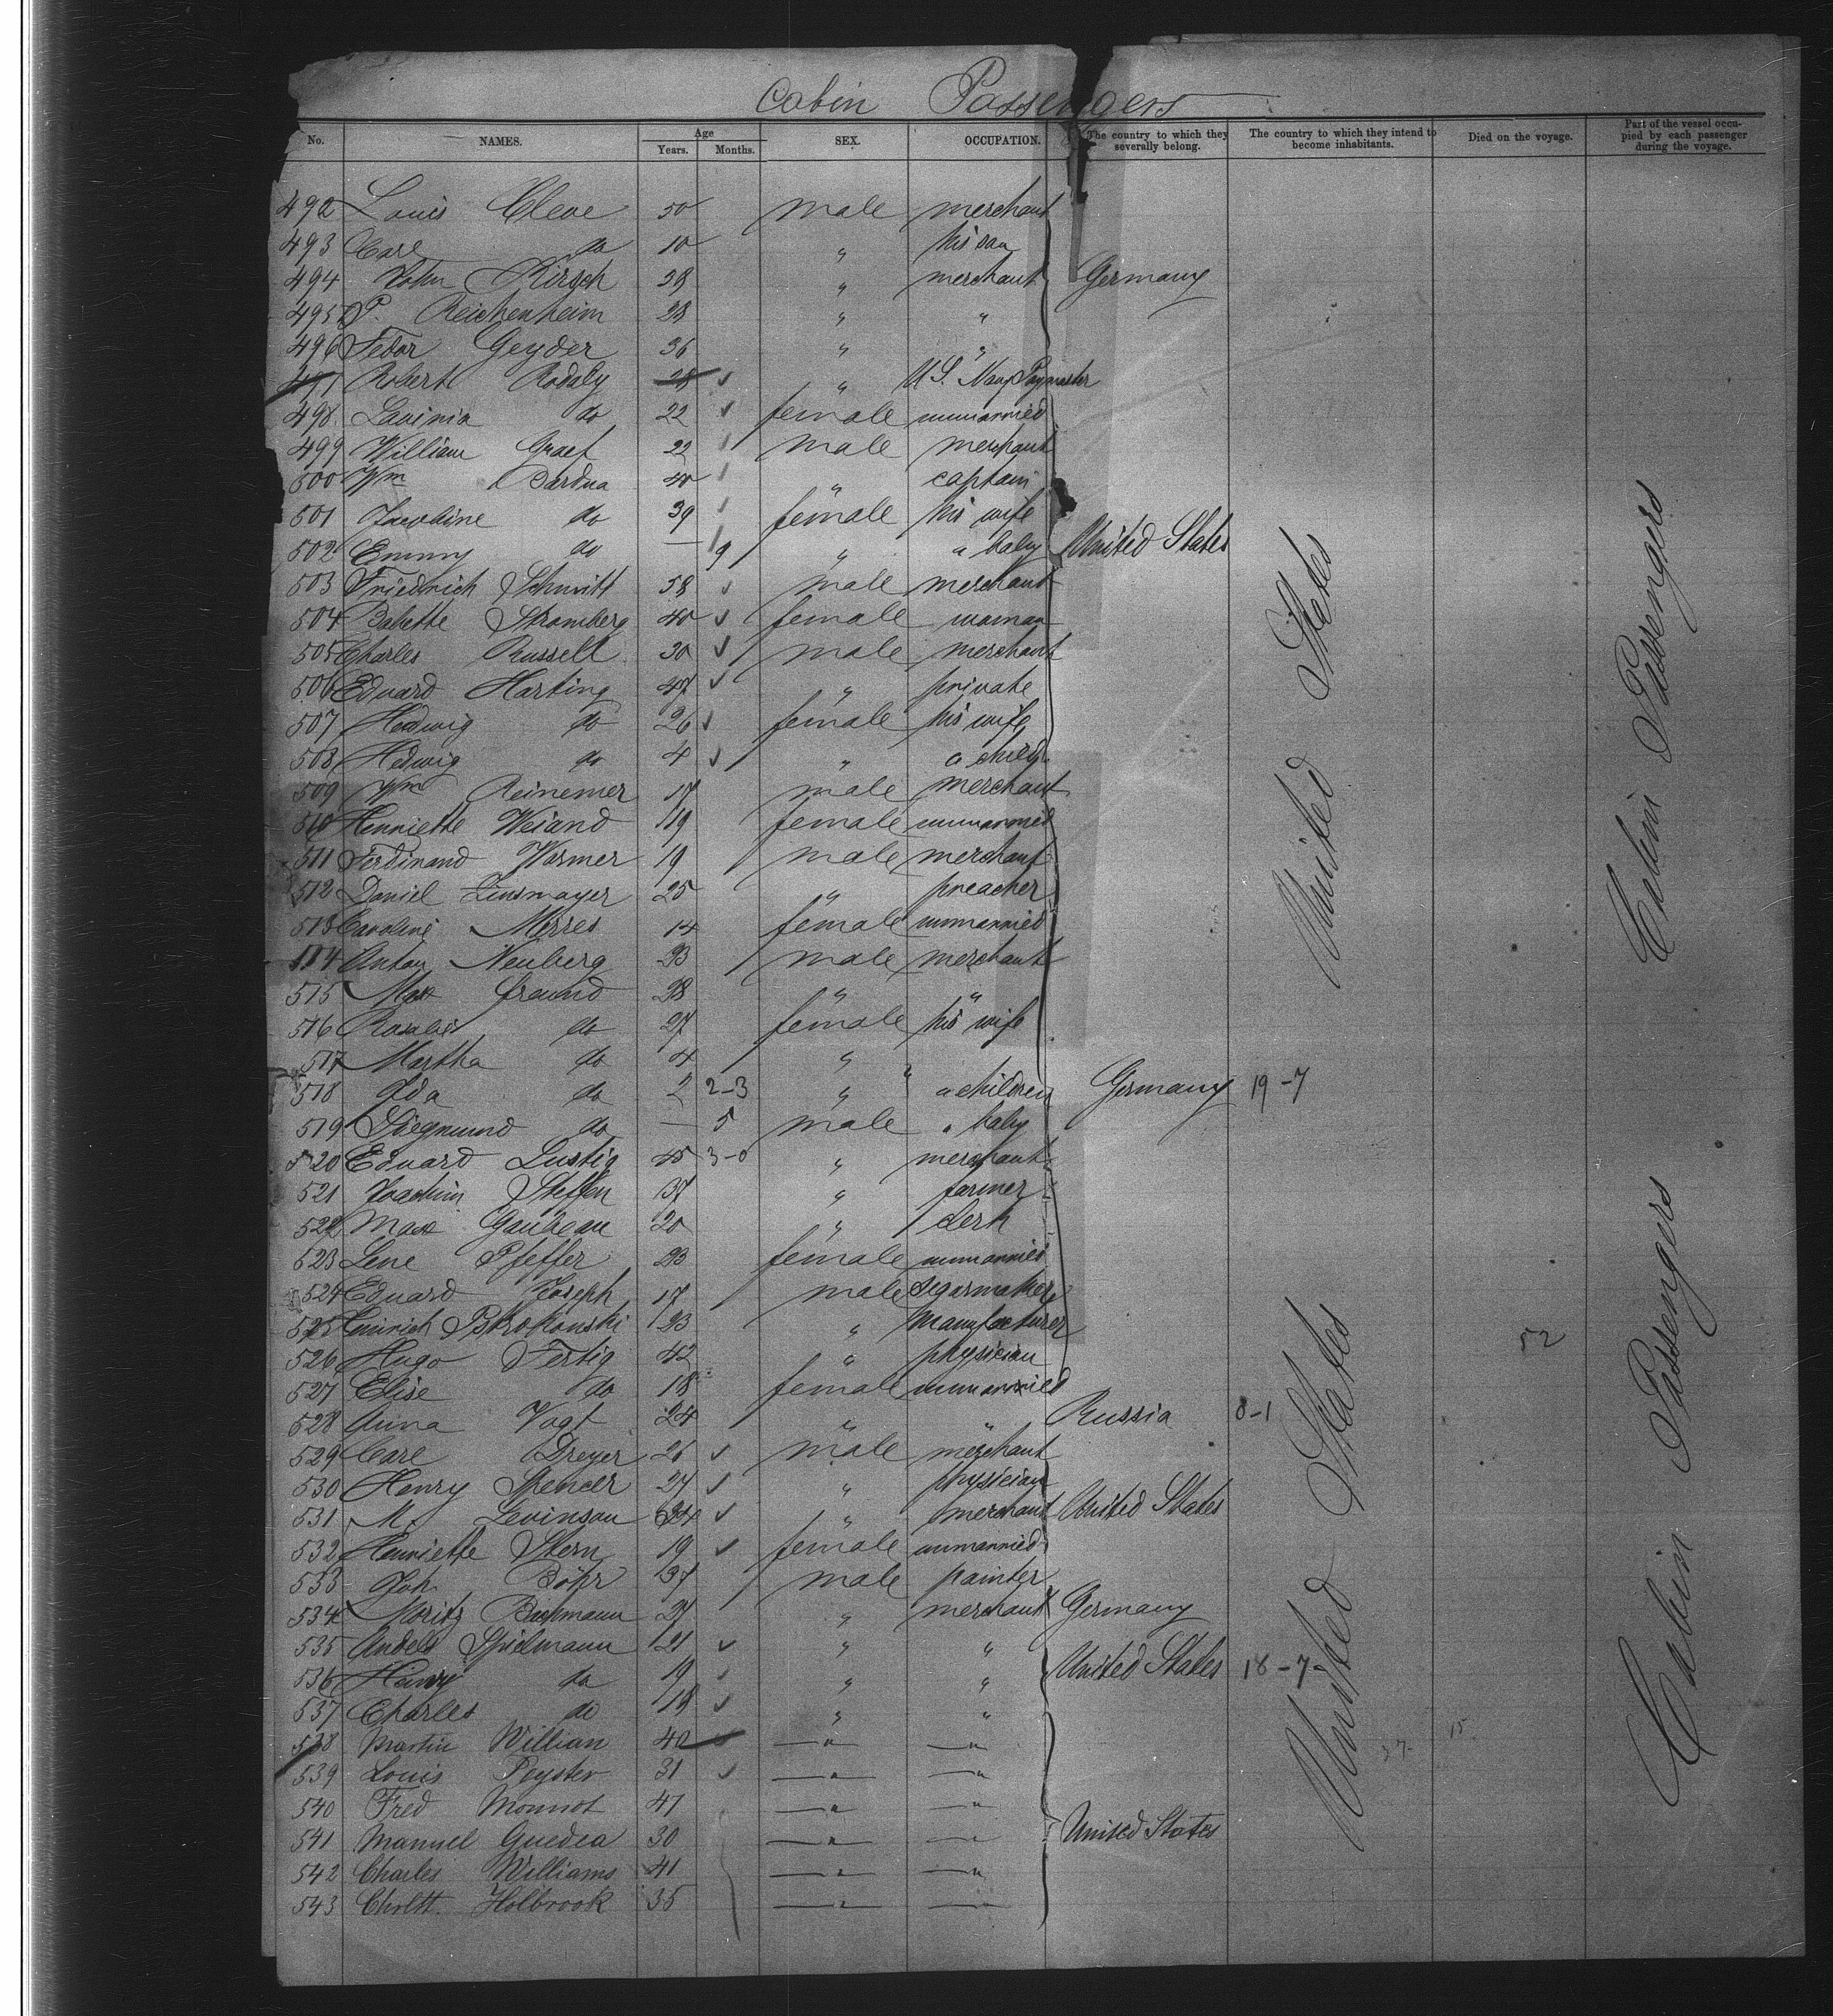 Cabin Passengers
No. NAMES. Age Years. Months. SEX. OCCUPATION. The country to which they severally belong. The country to which they intend to become inhabitants. Died on the voyage. Part of the vessel occupied by each passenger during the voyage.
492 Louis Cleve 50 male merchant
493 Carl do 10 " his son
494 John Kirsch 38 " merchant Germany
495 P. Reichenheim 28 " "
496 Fedor Geyder 36 " "
Robert Rodaly 28 " U.S. Navy Paymaster
498 Lavinia do 22 female unmarried
499 William Graef 22 male merchant
500 Wm Bardua 40 " captain
501 Jacobine do 39 female his wife
502 Emmy do — 9 " " baby United States
503 Friedrich Schmitt 58 male merchant
504 Babette Stromberg 40 female woman
505 Charles Russell 30 male merchant
506 Eduard Harting 47 " private
507 Hedwig do 26 female his wife
508 Hedwig do 4 " " child
509 Wm Reinemer 17 male merchant
510 Henriette Weiand 19 female unmarried
511 Ferdinand Wormer 19 male merchant
512 Daniel Zinsmayer 25 " preacher
513 Caroline Merres 14 female unmarried
514 Anton Neuberg 23 male merchant
515 Max Freund 28 " "
516 Rosalie do 27 female his wife
517 Martha do 4 " "
518 Ida do 2 2-3 " " children Germany 19-7
519 Siegmund do — 5 male " baby
520 Eduard Lustig 45 3-0 " merchant
521 Joachim Steffen 37 " farmer
522 Max Gaubeau 20 " clerk
523 Lene Pfeffer 23 female unmarried
524 Eduard Joseph 17 male segarmaker
525 Heinrich Pstrokonski 23 " manufacturer
526 Hugo Fertig 42 " physician 52
527 Elise do 18 female unmarried
528 Anna Vogt 24 " " Russia 8-1
529 Carl Dreyer 26 male merchant
530 Henry Spencer 27 " physician
531 M. Levinson 34 " merchant United States
532 Henriette Stern 19 female unmarried
533 Joh. Böhr 37 male painter
534 Moritz Buhmann 27 " merchant Germany
535 Andels Spielmann 21 " "
536 Henry do 19 " " United States 18-7
537 Charles do 18 " "
538 Martin Willian 40 " "
539 Louis Peyster 31 " "
540 Fred Monnot 41 " "
541 Manuel Guedea 30 " " United States
542 Charles Williams 41 " "
543 Chrltt. Holbrook 35 " "
United States
United States
37-
15
Cabin Passengers
Cabin Passengers